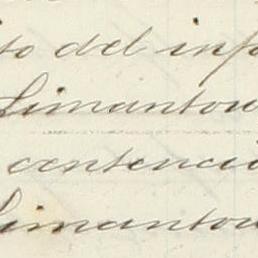 to del inf
Limantou
contenci
Limantou